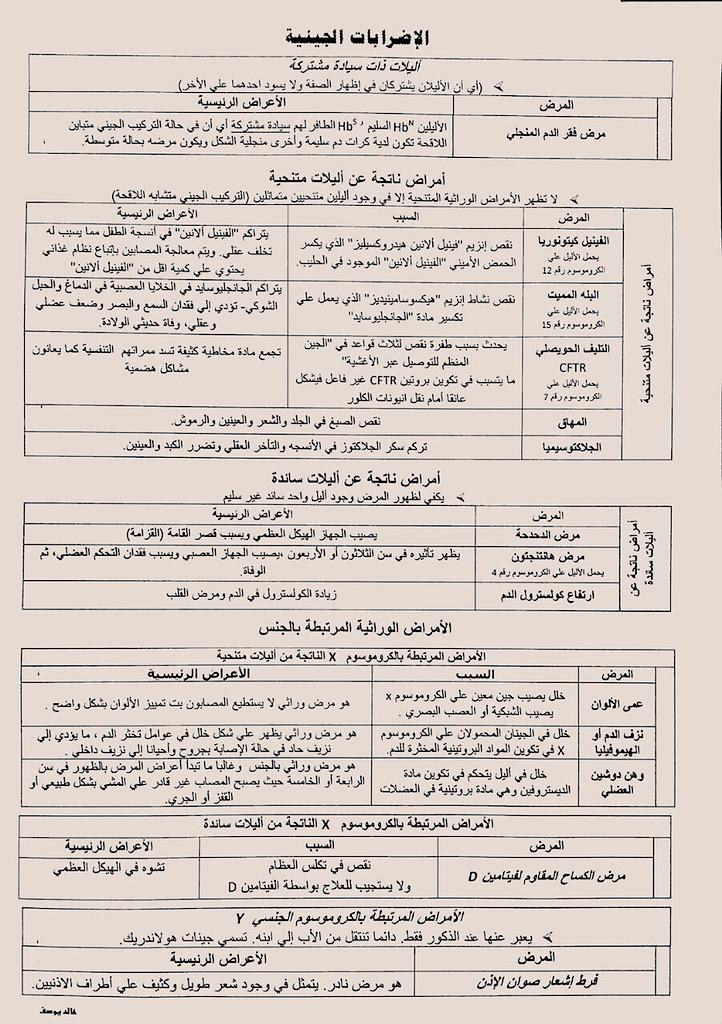 الإضرابات الجينية
أليلات ذات سيادة مشتركة
(أي أن الأليلان يشتركان في إظهار الصفة ولا يسود احدهما علي الأخر)
المرض
الأعراض الرئيسية
مرض فقر الدم المنجلي
الأليلين HbN السليم و HbS الطافر لهم سيادة مشتركة أي أن في حالة التركيب الجيني متباين
اللاقحة تكون لدية كرات دم سليمة وأخرى منجلية الشكل ويكون مرضه بحالة متوسطة.
أمراض ناتجة عن أليلات متنحية
لا تظهر الأمراض الوراثية المتنحية إلا في وجود أليلين متنحيين متماثلين (التركيب الجيني متشابه اللاقحة)
أمراض ناتجة عن أليلات متنحية
المرض
السبب
الأعراض الرئيسية
الفينيل كيتونوريا
يحمل الأليل علي
الكروموسوم رقم 12
نقص إنزيم "فينيل ألانين هيدروكسيليز" الذي يكسر
الحمض الأميني "الفينيل ألانين" الموجود في الحليب.
يتراكم "الفينيل ألانين" في أنسجة الطفل مما يسبب له
تخلف عقلي. ويتم معالجة المصابين بإتباع نظام غذائي
يحتوي علي كمية اقل من "الفينيل ألانين"
البله المميت
يحمل الأليل علي
الكروموسوم رقم 15
نقص نشاط إنزيم "هيكسوسامينيديز" الذي يعمل علي
تكسير مادة "الجانجليوسايد"
يتراكم الجانجليوسايد في الخلايا العصبية في الدماغ والحبل
الشوكي- تؤدي إلي فقدان السمع والبصر وضعف عضلي
وعقلي، وفاة حديثي الولادة.
التليف الحويصلي
CFTR
يحمل الأليل علي
الكروموسوم رقم 7
يحدث بسبب طفرة نقص لثلاث قواعد في "الجين
المنظم للتوصيل عبر الأغشية"
ما يتسبب في تكوين بروتين CFTR غير فاعل فيشكل
عائقا أمام نقل انيونات الكلور
تجمع مادة مخاطية كثيفة تسد ممراتهم التنفسية كما يعانون
مشاكل هضمية
المهاق
نقص الصبغ في الجلد والشعر والعينين والرموش.
الجلاكتوسيميا
تركم سكر الجلاكتوز في الأنسجه والتأخر العقلي وتضرر الكبد والعينين.
أمراض ناتجة عن أليلات ساندة
يكفي لظهور المرض وجود أليل واحد ساند غير سليم
أمراض ناتجة عن
أليلات ساندة
المرض
الأعراض الرئيسية
مرض الدحدحة
يصيب الجهاز الهيكل العظمي ويسبب قصر القامة (القزامة)
مرض هانتنجتون
يحمل الأليل علي الكروموسوم رقم 4
يظهر تأثيره في سن الثلاثون أو الأربعون ،يصيب الجهاز العصبي ويسبب فقدان التحكم العضلي، ثم
الوفاة.
ارتفاع كولسترول الدم
زيادة الكولسترول في الدم ومرض القلب
الأمراض الوراثية المرتبطة بالجنس
الأمراض المرتبطة بالكروموسوم X الناتجة من أليلات متنحية
المرض
السبب
الأعراض الرئيسية
عمى الألوان
خلل يصيب جين معين علي الكروموسوم x
يصيب الشبكية أو العصب البصري .
هو مرض وراثي لا يستطيع المصابون بت تمييز الألوان بشكل واضح .
نزف الدم أو
الهيموفيليا
خلل في الجينان المحمولان علي الكروموسوم
X في تكوين المواد البروتينية المخثرة للدم.
هو مرض وراثي يظهر علي شكل خلل في عوامل تخثر الدم ، ما يؤدي إلي
نزيف حاد في حالة الإصابة بجروح وأحيانا إلي نزيف داخلي .
وهن دوشين
العضلي
خلل في أليل يتحكم في تكوين مادة
الديستروفين وهي مادة بروتينية في العضلات
هو مرض وراثي بالجنس وغالبا ما تبدأ أعراض المرض بالظهور في سن
الرابعة أو الخامسة حيث يصبح المصاب غير قادر علي المشي بشكل طبيعي أو
القفز أو الجري.
الأمراض المرتبطة بالكروموسوم X الناتجة من أليلات ساندة
المرض
السبب
الأعراض الرئيسية
مرض الكساح المقاوم لفيتامين D
نقص في تكلس العظام
ولا يستجيب للعلاج بواسطة الفيتامين D
تشوه في الهيكل العظمي
الأمراض المرتبطة بالكروموسوم الجنسي Y
يعبر عنها عند الذكور فقط. دائما تنتقل من الأب إلي ابنه. تسمي جينات هولاندريك.
المرض
الأعراض الرئيسية
فرط إشعار صوان الإذن
هو مرض نادر. يتمثل في وجود شعر طويل وكثيف علي أطراف الاذنيين.
خالد يوسف